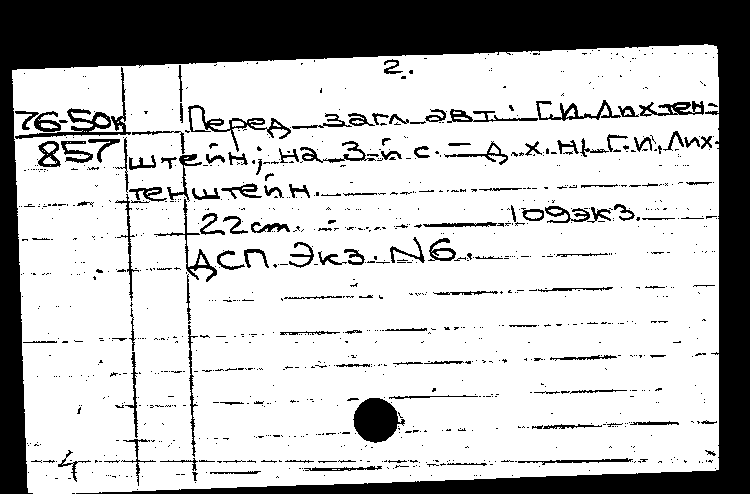 2.
76-50к
857
Перед загл. авт.: Г.И. Лихтен-
штейн; на 3-й с. – д. х. н. Г.И. Лих-
тенштейн.
22 см. - 109 экз.
ДСП. Экз. N6.
4